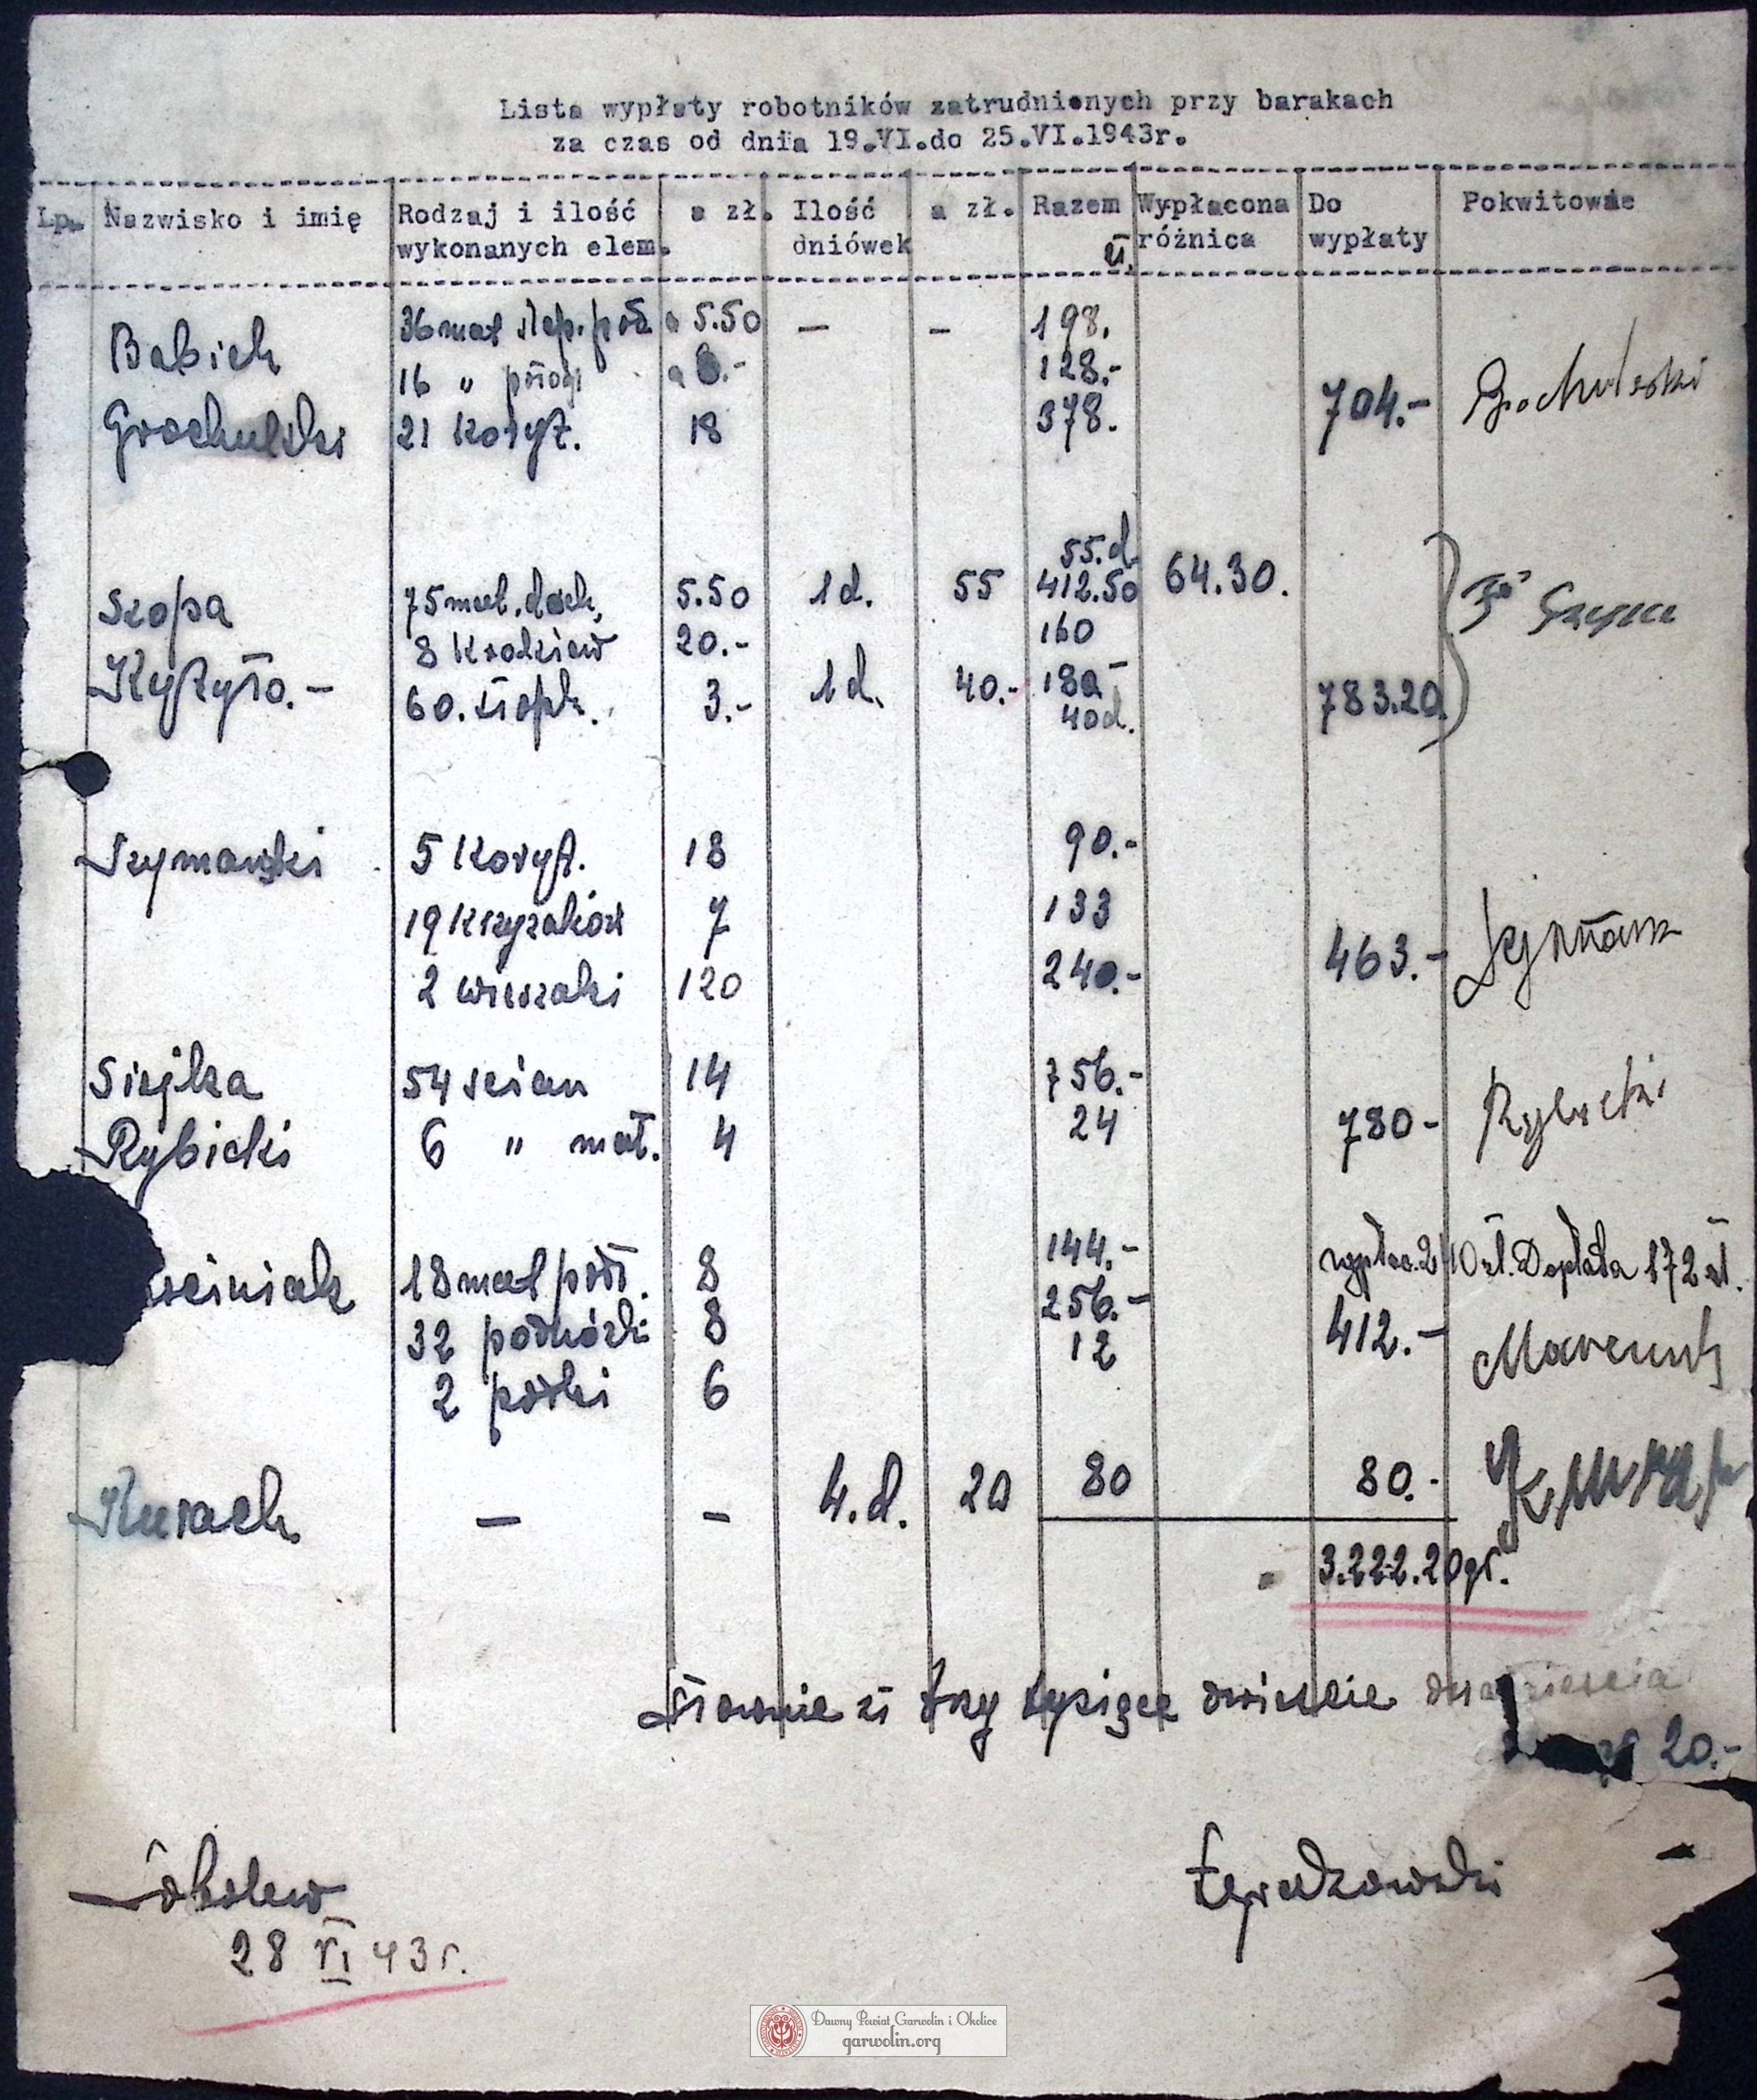 Lista wypłaty robotników zatrudnionych przy barakach
za czas od dnia 19.VI.do 25.VI.1943r.
Lp. Nazwisko i imię Rodzaj i ilość wykonanych elem. a zł. Ilość dniówek a zł. Razem Wypłacona różnica Do wypłaty Pokwitownie
36 mat a 5.50 — — 198.
Babich
16 " progi a 8.- 128.-
Grochulski 21 koryt. 18 378. 704.- Grochulski
55.d
Szopa 75 mat. dach. 5.50 1 d. 55 412.50 64.30.
8 20.- 160
60. 3.- 1 d. 40.- 180 783.20
40d.
Szymański 5 koryt. 18 90.-
19 krzyżaków 7 133
2 wieszaki 120 240.- 463.-
Siejka 54 ścian 14 756.-
Rybicki 6 " mał. 4 24 780- Rybicki
18 mat 8 144.- wypłac. 240 zł. Dopłata 172 zł.
32 8 256.- 412.-
2 półki 6 12
Kurach — — 4.d. 20 80 80.-
3.222.20gr.
Słownie zł trzy tysiące dwieście dwadzieścia
20.-
Sobolew
28 VI 43 r.
Dawny Powiat Garwolin i Okolice
garwolin.org